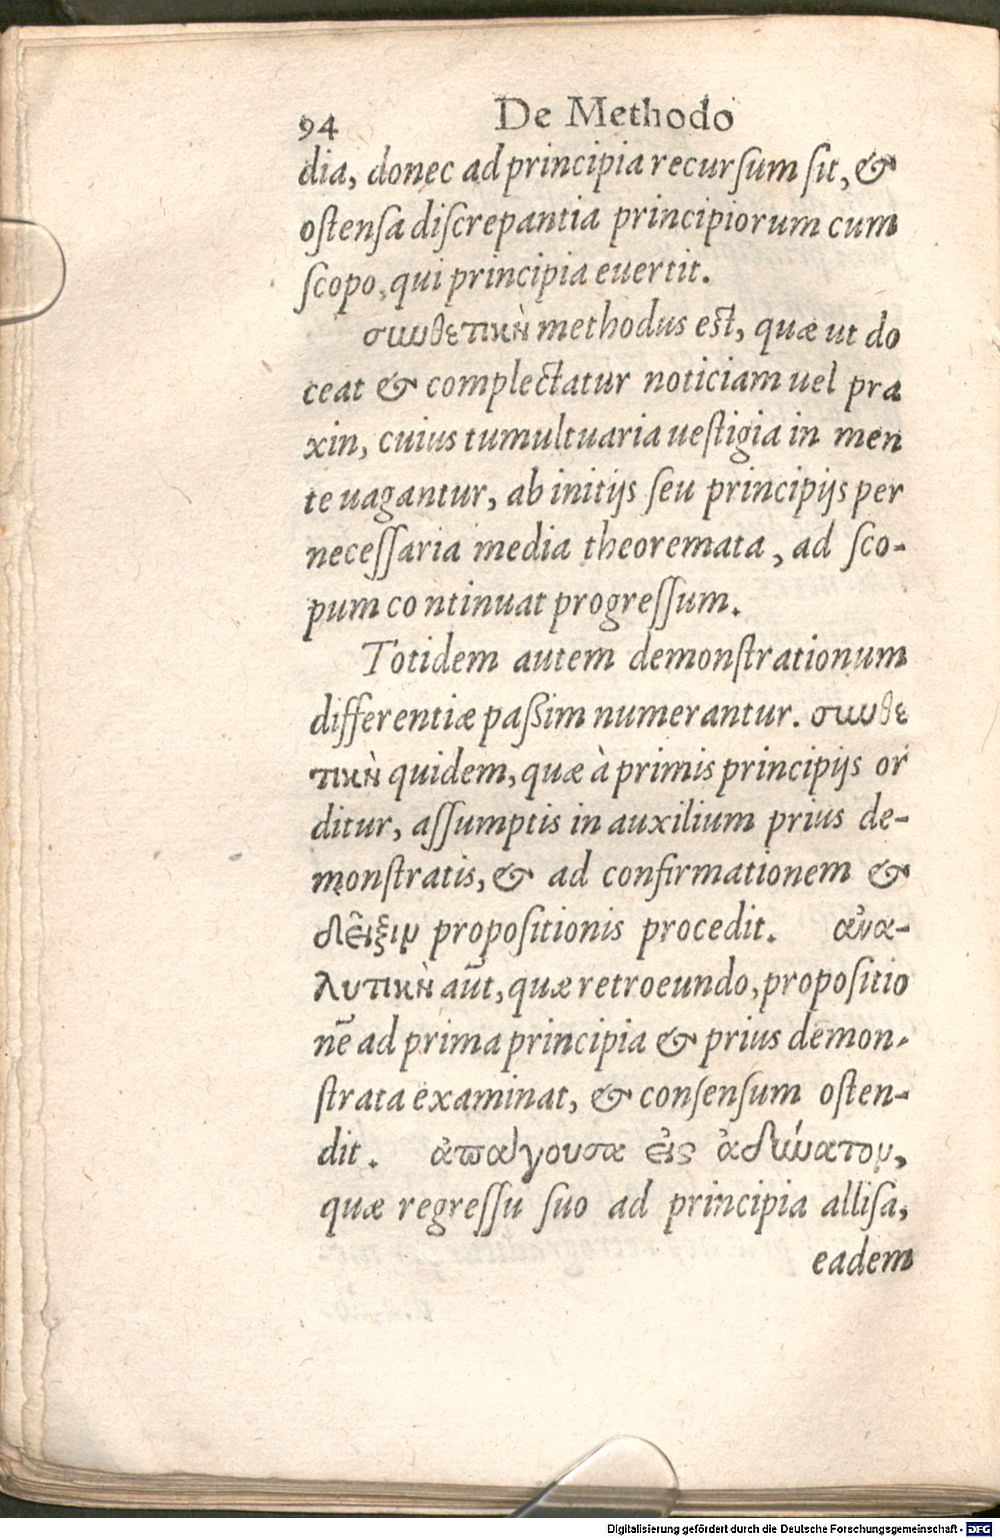 94 De Methodo
dia, donec ad principia recursum sit, &
ostensa discrepantia principiorum cum
scopo, qui principia euertit.
συνθετικὴ methodus est, quæ ut do
ceat & complectatur noticiam uel pra
xin, cuius tumultuaria uestigia in men
te uagantur, ab initijs seu principijs per
necessaria media theoremata, ad sco-
pum continuat progressum.
Totidem autem demonstrationum
differentiæ paßim numerantur. συνθε
τικὴ quidem, quæ à primis principijs or
ditur, assumptis in auxilium prius de-
monstratis, & ad confirmationem &
δεῖξιν propositionis procedit. ἀνα-
λυτικὴ aūt, quæ retroeundo, propositio
nē ad prima principia & prius demon-
strata examinat, & consensum osten-
dit. ἀπαίγουσα εἰς ἀδύνατον,
quæ regressu suo ad principia allisa,
eadem
Digitalisierung gefördert durch die Deutsche Forschungsgemeinschaft - DFG